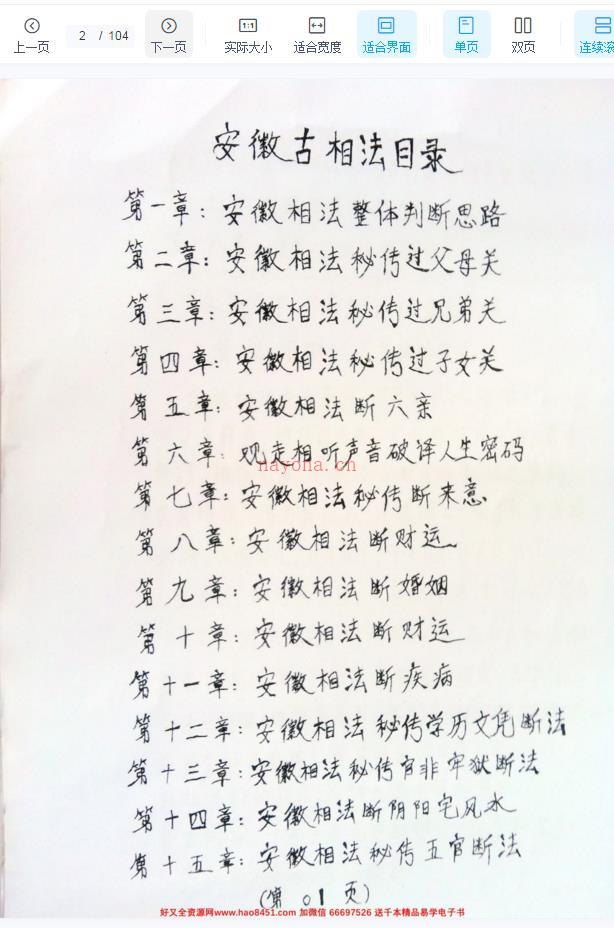 上一页 2 / 104 下一页 1:1 实际大小 适合宽度 适合界面 单页 双页 连续滚
安徽古相法目录
第一章：安徽相法整体判断思路
第二章：安徽相法秘传过父母关
第三章：安徽相法秘传过兄弟关
第四章：安徽相法秘传过子女关
第五章：安徽相法断六亲
第六章：观走相听声音破译人生密码
nayona.cn
第七章：安徽相法秘传断来意
第八章：安徽相法断财运
第九章：安徽相法断婚姻
第十章：安徽相法断财运
第十一章：安徽相法断疾病
第十二章：安徽相法秘传学历文凭断法
第十三章：安徽相法秘传官非牢狱断法
第十四章：安徽相法断阴阳宅风水
第十五章：安徽相法秘传五官断法
(第01页)
好又全资源网www.hao8451.com 加微信 66697526 送千本精品易学电子书